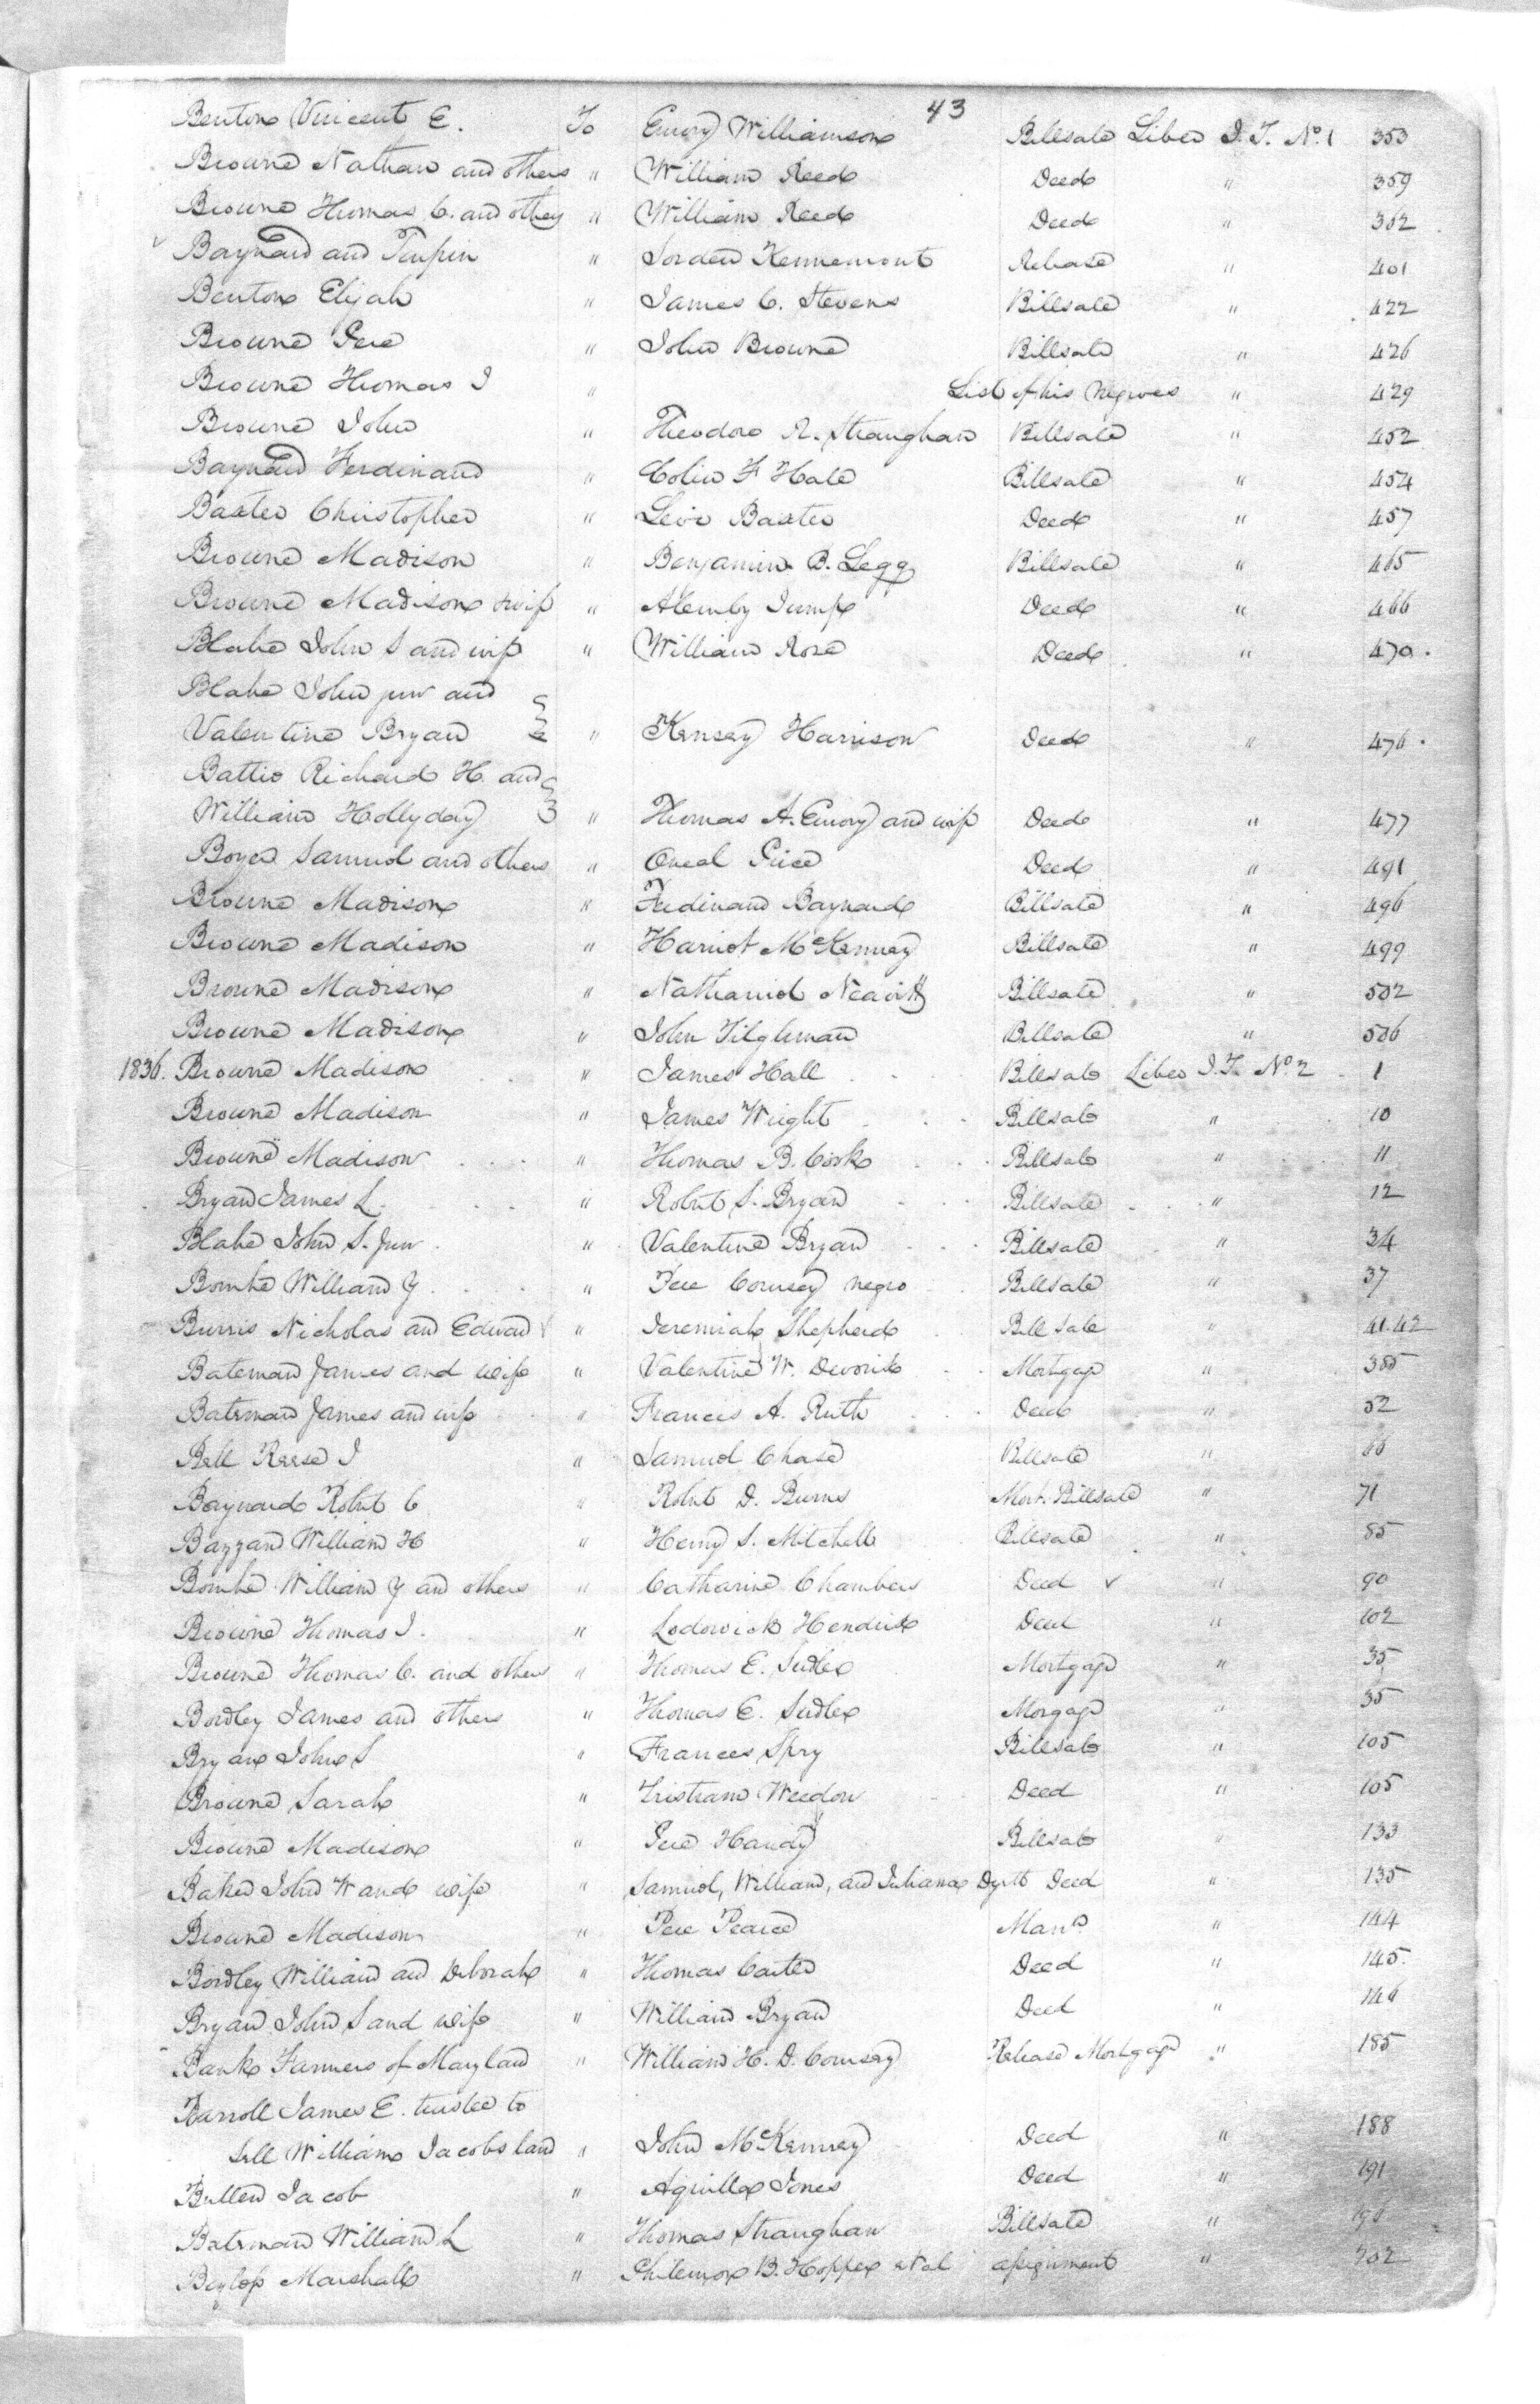 43
Benton Vincent E. To Emory Williamson Billsale Liber J. T. No. 1 353
Browne Nathan and others " William Reed Deed " 359
Browne Thomas C. and others " William Reed Deed " 362
Baynard and Turpin " Jorden Kennemont Release " 401
Benton Elijah " James C. Stevens Billsale " 422
Browne Pere " John Browne Billsale " 426
Browne Thomas I " List of his Negroes " 429
Browne John " Theodore R. Straughan Billsale " 452
Baynard Ferdinand " Colin F Hale Billsale " 454
Baxter Christopher " Levi Baxter Deed " 457
Browne Madison " Benjamin B. Legg Billsale " 465
Browne Madison & wife " Alemby Jump Deed " 466
Blake John S and wife " William Rose Deed " 470.
Blake John jun and
Valentine Bryan " Kensey Harrison Deed " 476.
Battie Richard H. and
William Hollyday " Thomas A. Emory and wife Deed " 477
Boyer Samuel and others " Oneal Price Deed " 491
Browne Madison " Ferdinand Baynard Billsale " 496
Browne Madison " Harriot McKenney Billsale " 499
Browne Madison " Nathaniel Neavitt Billsale " 502
Browne Madison " John Tilghman Billsale " 506
1836. Browne Madison " James Hall Billsale Liber J. T. No. 2 1
Browne Madison " James Wright Billsale " 10
Browne Madison " Thomas B. Cook Billsale " 11
Bryan James L. " Robert S. Bryan Billsale " 12
Blake John S. Jun " Valentine Bryan Billsale " 34
Bourke William Y " Pere Comsey negro Billsale " 37
Burris Nicholas and Edward " Jeremiah Shepherd Bill Sale " 41.42
Bateman James and wife " Valentine W. Mortgage " 385
Bateman James and wife " Francis A. Ruth Deed " 52
Bell Reese I " Samuel Chase Billsale " 66
Baynard Robert C " Robert D. Burns Mort. Billsale " 71
Bazzard William H " Henry S. Mitchell Billsale " 85
Bourke William Y and others " Catharine Chambers Deed " 90
Browne Thomas I. " Lodowick Hendrix Deed " 102
Browne Thomas C. and others " Thomas E. Sudler Mortgage " 35
Bordley James and others " Thomas E. Sudler Morgage " 35
Bryan John S " Frances Spry Billsale " 105
Browne Sarah " Tristram Weedon Deed " 105
Browne Madison " Pere Handy Billsale " 133
Baker John W and wife " Samuel, William, and Juliana Deed " 135
Browne Madison " Pere Pearce Man.n " 144
Bordley William and Deborah " Thomas Carter Deed " 145
Bryan John S and wife " William Bryan Deed " 146
Bank Farmers of Maryland " William H. D. Comsey Release Mortgage " 185
Barroll James E. trustee to
Sell William Jacobs land " John McKenney Deed " 188
Bullen Jacob " Aquilla Jones Deed " 191
Bateman William L " Thomas Straughan Billsale " 196
Marshall " Philemon B. Hopper et al assignment " 202